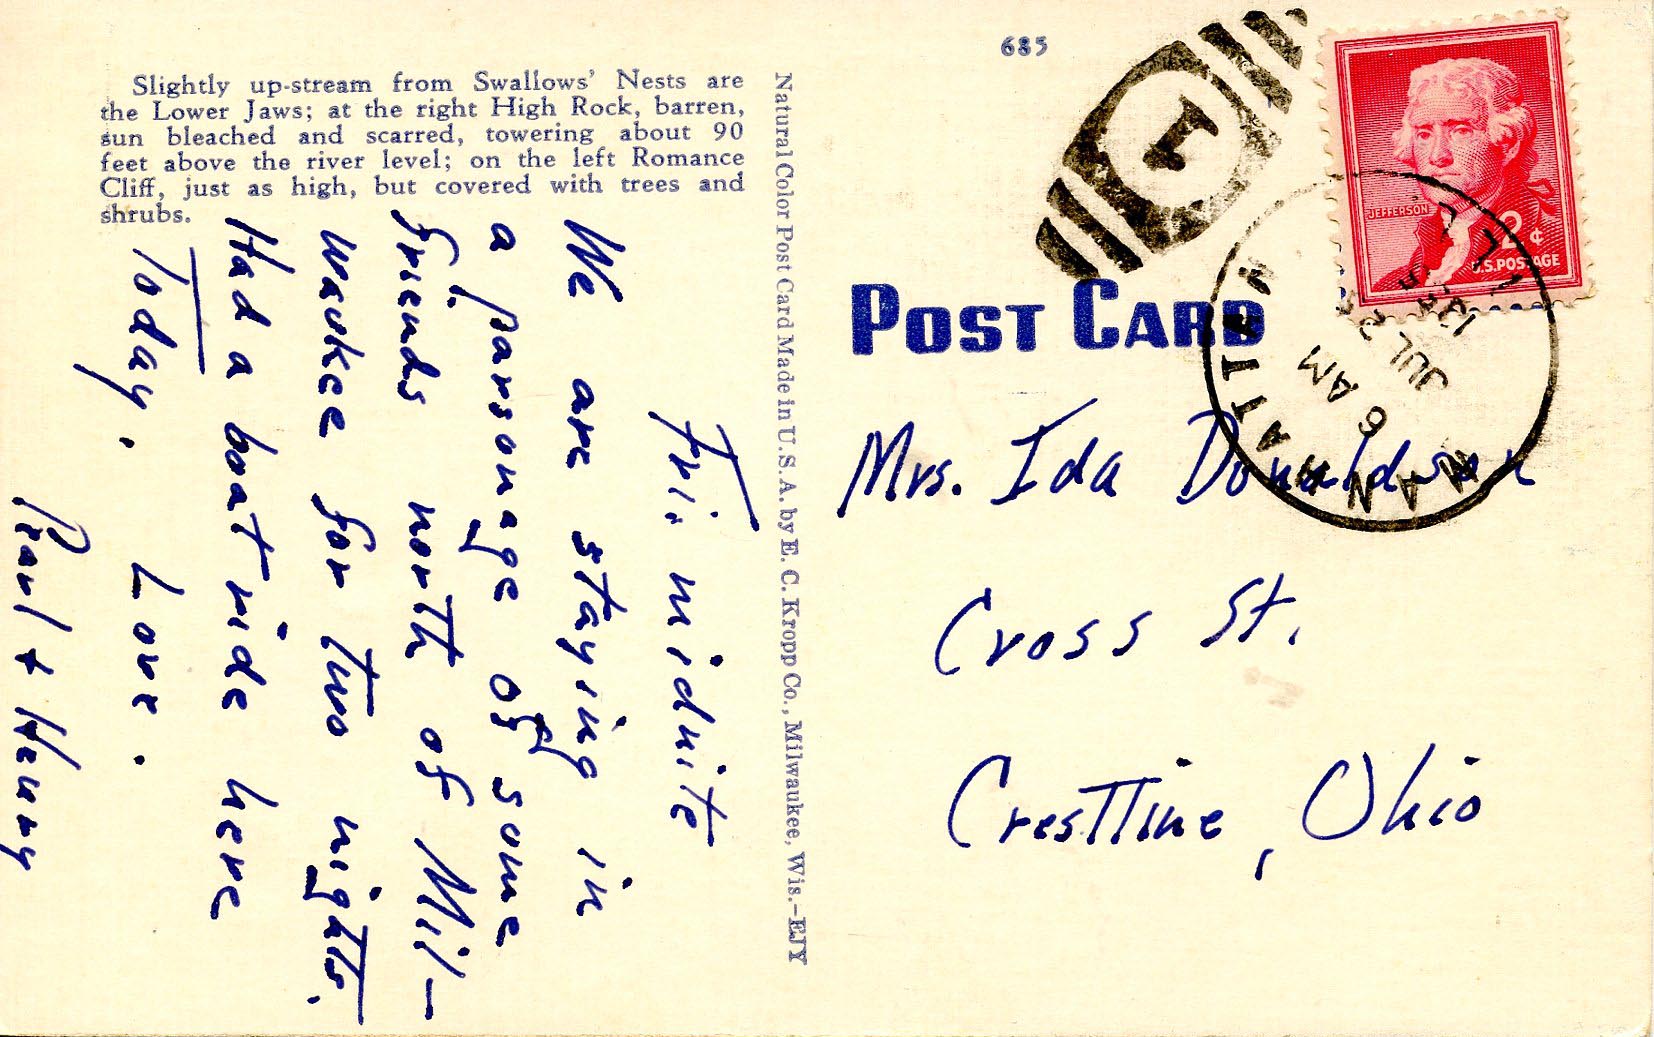 685
Slightly up-stream from Swallows' Nests are
the Lower Jaws; at the right High Rock, barren,
sun bleached and scarred, towering about 90
feet above the river level; on the left Romance
Cliff, just as high, but covered with trees and
shrubs.
Fri. nidnite
We are staying in
a parsonage of some
friends north of Mil-
waukee for two nights.
Had a boat ride here
Today. Love.
Pearl + Henny
Natural Color Post Card Made in U.S.A. by E. C. Kropp Co., Milwaukee, Wis.-EJY
POST CARD
1
MATTOON
6 AM
JUL
JEFFERSON
2¢
U.S. POSTAGE
Mrs. Ida Donaldson
Cross St.
Crestline, Ohio